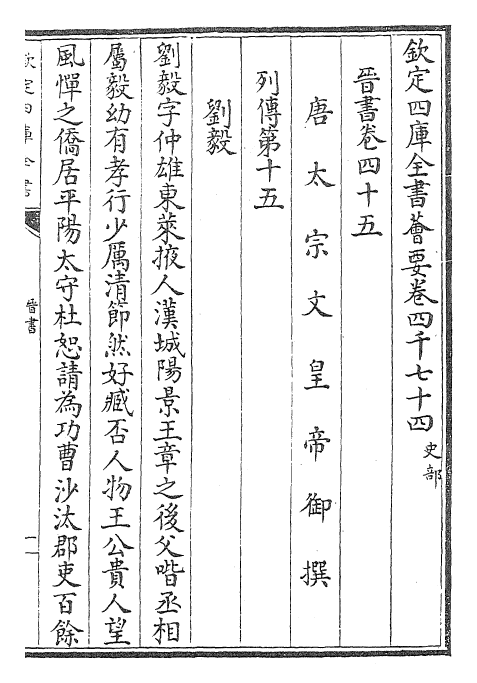 欽定四庫全書薈要卷四千七十四 史部
晉書卷四十五
唐太宗文皇帝御撰
列傳第十五
劉毅
劉毅字仲雄東萊掖人漢城陽景王章之後父喈丞相
屬毅幼有孝行少厲清節然好臧否人物王公貴人望
風憚之僑居平陽太守杜恕請為功曹沙汰郡吏百餘
欽定四庫全書
晉書
一